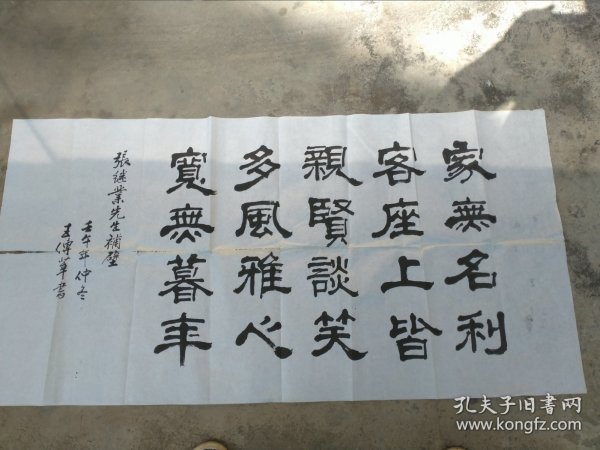 家無名利
客座上皆
親賢談笑
多風雅心
寬無暮年
張继業先生補壁
壬午年仲冬
王傳華書
孔夫子旧书网
www.kongfz.com